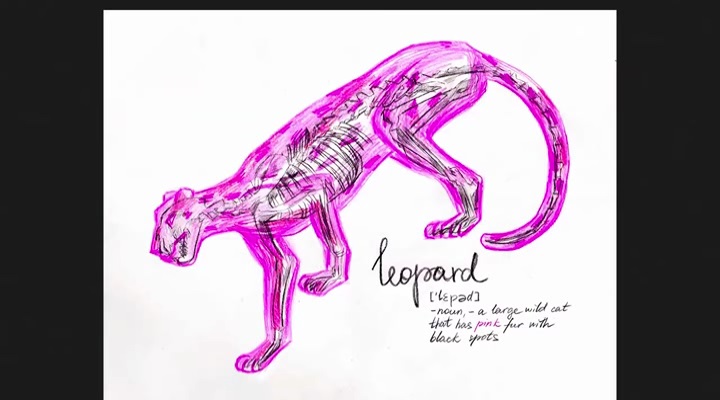 leopard
['lɛpəd]
-noun, - a large wild cat
that has pink fur with
black spots